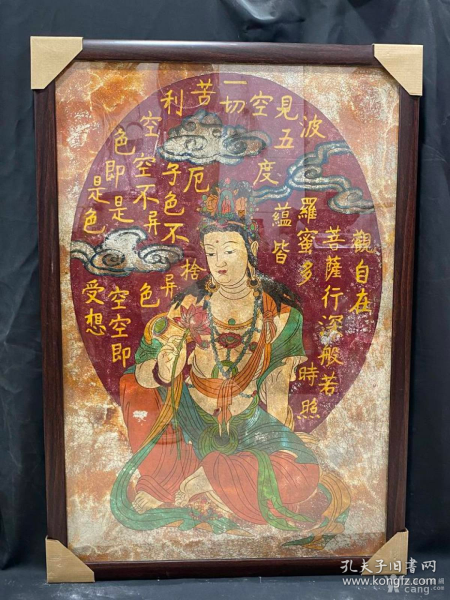 觀自在
菩薩行深般若
波羅蜜多時照
見五蘊皆
空度
一切
苦厄捨
利子色不異
空空不異色
色即是空空即
是色受想
孔夫子旧书网
www.kongfz.com